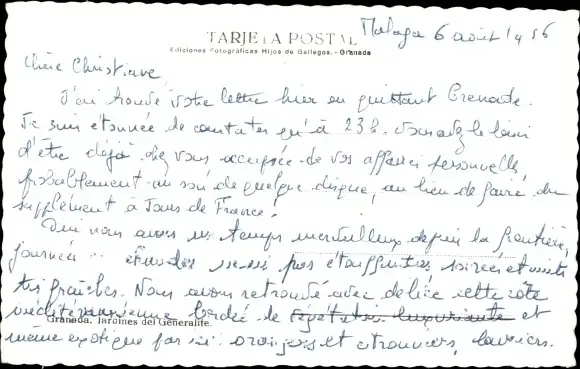 TARJETA POSTAL
Ediciones Fotográficas Hijos de Gallegos. - Granada
Malaga 6 août 1956
Chère Christiane
J'ai trouvé votre lettre hier en quittant Grenade.
Je suis étonnée de constater qu'à 23h. vous
d'être déjà chez vous occupée de vos affaires personnelles,
probablement au son de quelque disque, au lieu de faire du
supplément à Tours de France!
Oui nous avons un temps merveilleux depuis la frontière,
journées chaudes mais pas étouffantes, soirées et nuits
très fraîches. Nous avons retrouvé avec délice cette côte
méditerranéenne bordée de et
Granada. Jardines del Generalife.
même exotique par ici: orangers et citronniers, lauriers.